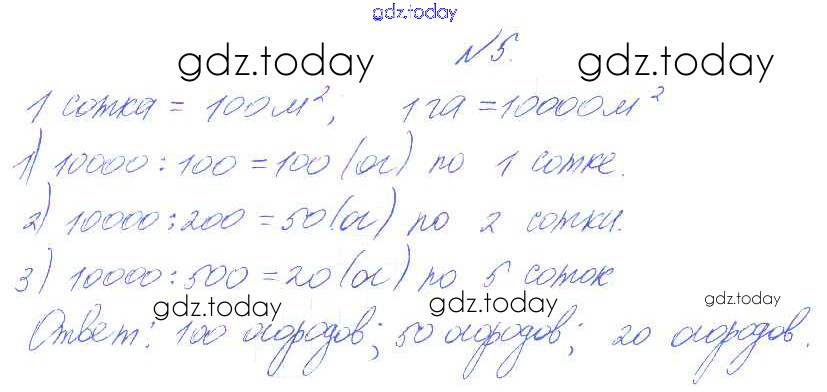 gdz.today
gdz.today №5. gdz.today
1 сотка = 100 м²; 1 га = 10000 м²
1) 10000 : 100 = 100 (ог) по 1 сотке.
2) 10000 : 200 = 50 (ог) по 2 сотки.
3) 10000 : 500 = 20 (ог) по 5 соток
gdz.today gdz.today gdz.today
Ответ: 100 огородов; 50 огородов; 20 огородов.